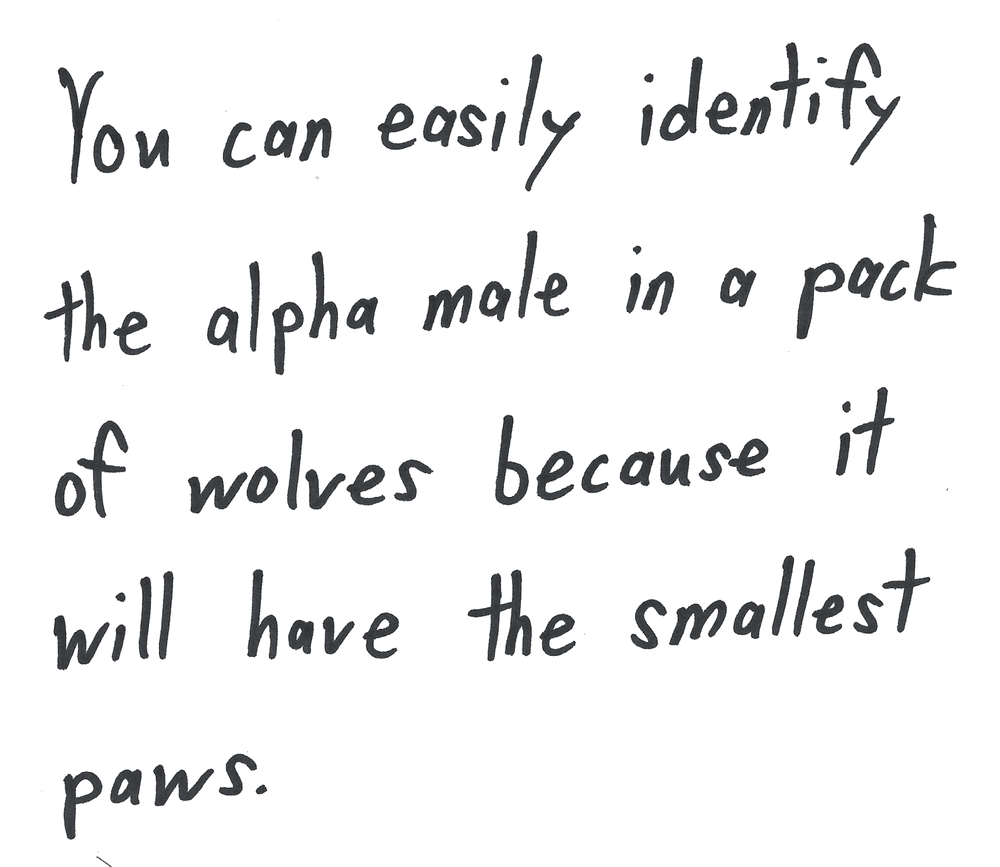 You can easily identify
the alpha male in a pack
of wolves because it
will have the smallest
paws.